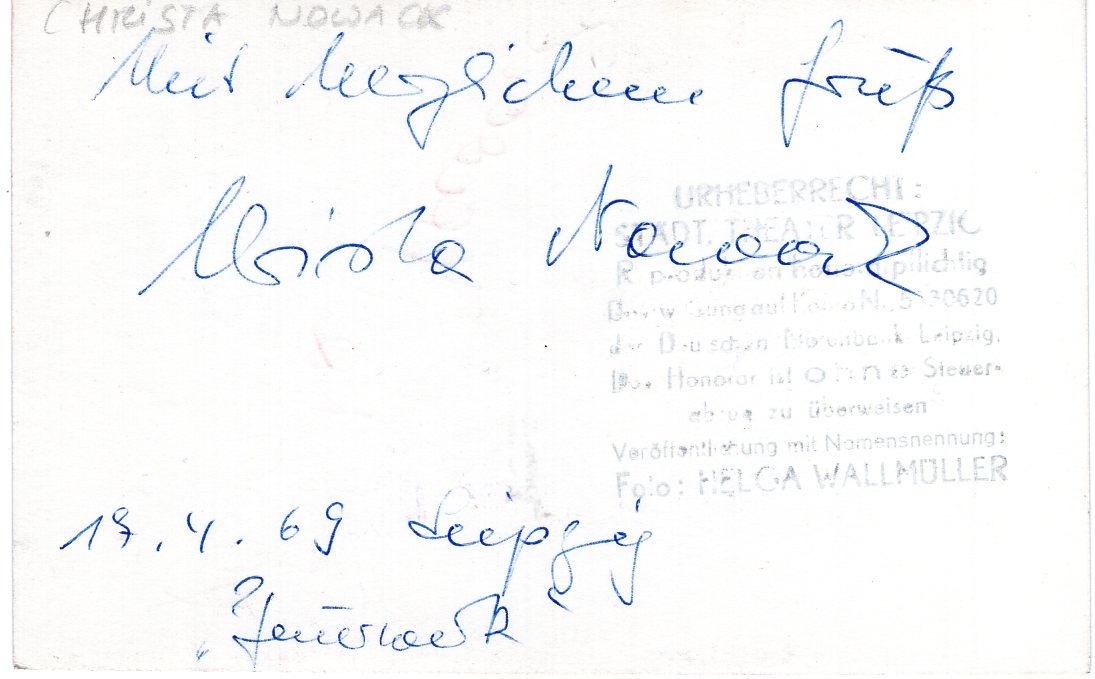 CHRISTA NOWACK
Mit herzlichem Gruß
Christa Nowack
URHEBERRECHT:
STÄDT. THEATER LEIPZIG
Reproduktion honorarpflichtig
auf Konto Nr.
der Deutschen Notenbank Leipzig.
Das Honorar ist ohne Steuer-
abzug zu überweisen
Veröffentlichung mit Namensnennung:
Foto: HELGA WALLMÜLLER
17.4.69 Leipzig
„Feuerwerk“